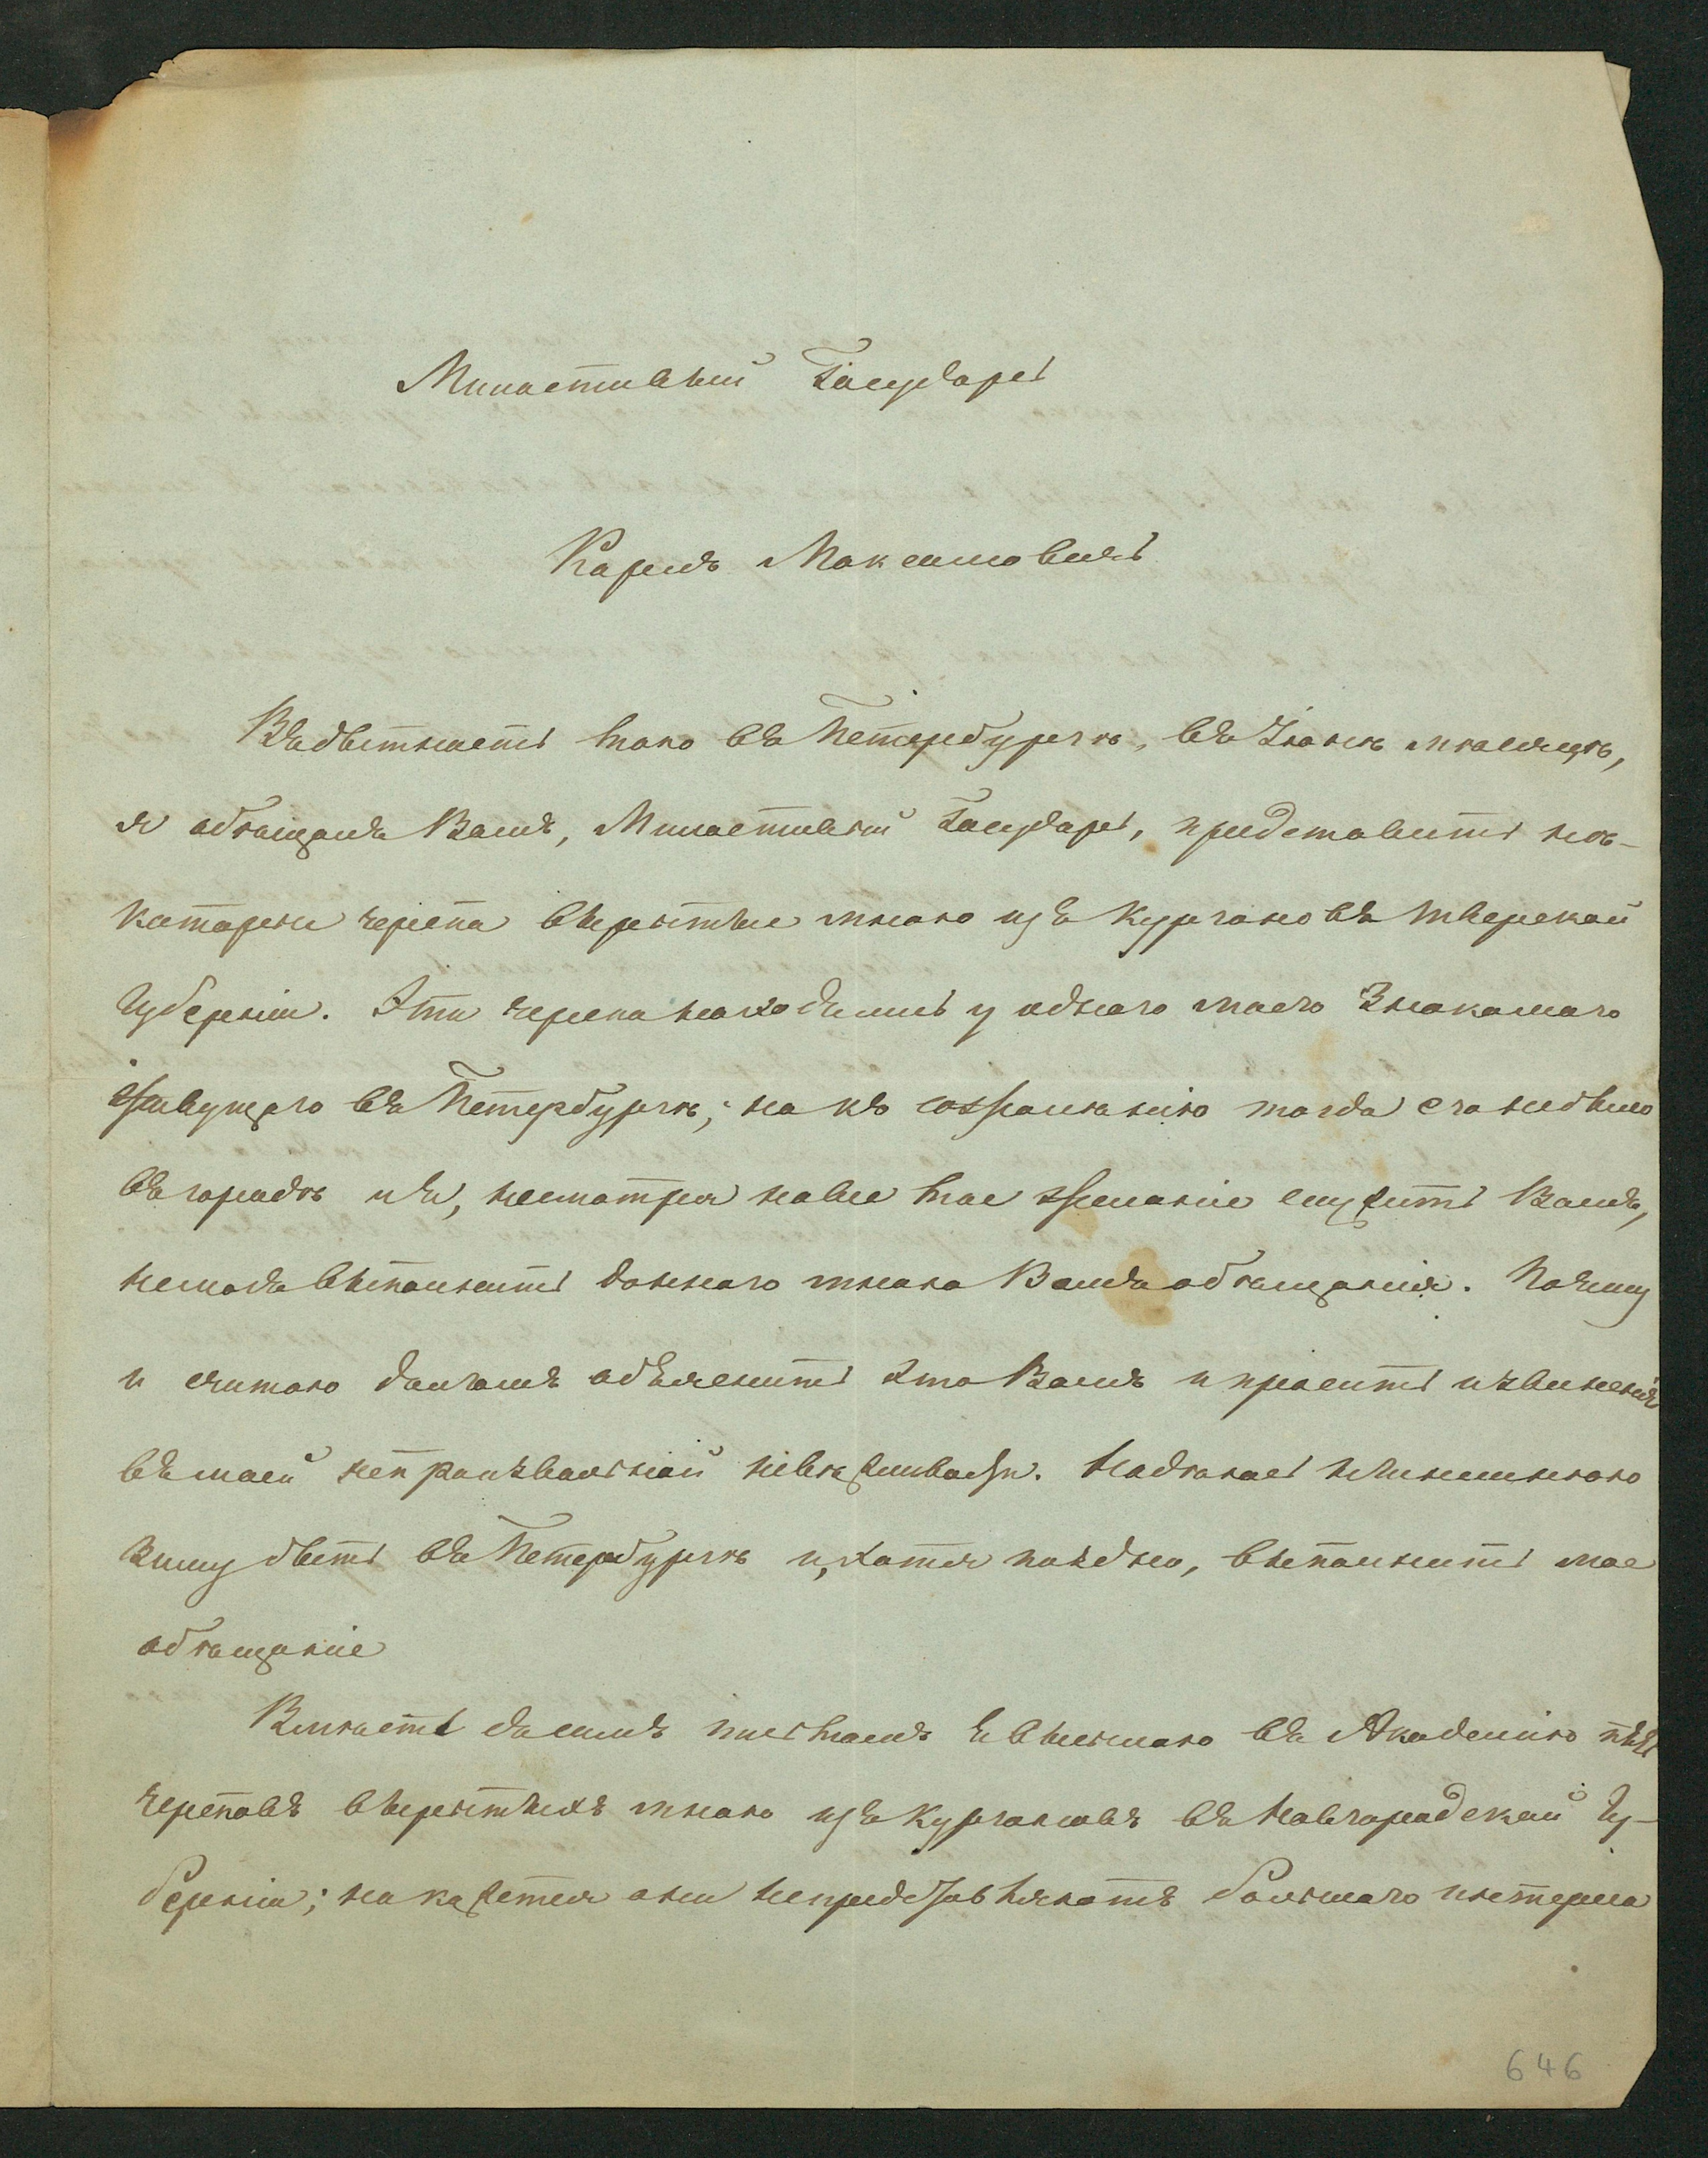 Милостивый Государь
Карлъ Максимовичь
Въ бытность мою въ Петербургѣ, въ Іюнѣ мѣсяцѣ,
я обѣщалъ Вамъ, Милостивый Государь, представить нѣ-
которые черепа вырытые мною изъ кургановъ Тверской
Губерніи. Эти черепа находились у одного моего Знакомаго
живущаго въ Петербургѣ; но къ сожалѣнію тогда его небыло
въ городѣ и я, несмотря на все мое желаніе служить Вамъ,
немогъ выполнить даннаго мною Вамъ обѣщанія. Почему
и считаю долгомъ объяснить это Вамъ и просить извиненія
въ моей непроизвольной невѣжливости. Надѣюсь нынешнюю
Зиму быть въ Петербургѣ и, хотя поздно, выполнить мое
обѣщаніе
Вмѣстѣ съ симъ письмомъ я высылаю въ Академію пять
череповъ вырытыхъ мною изъ кургановъ въ Новгородской Гу-
берніи; но кажется они непредставляютъ большаго интереса
646